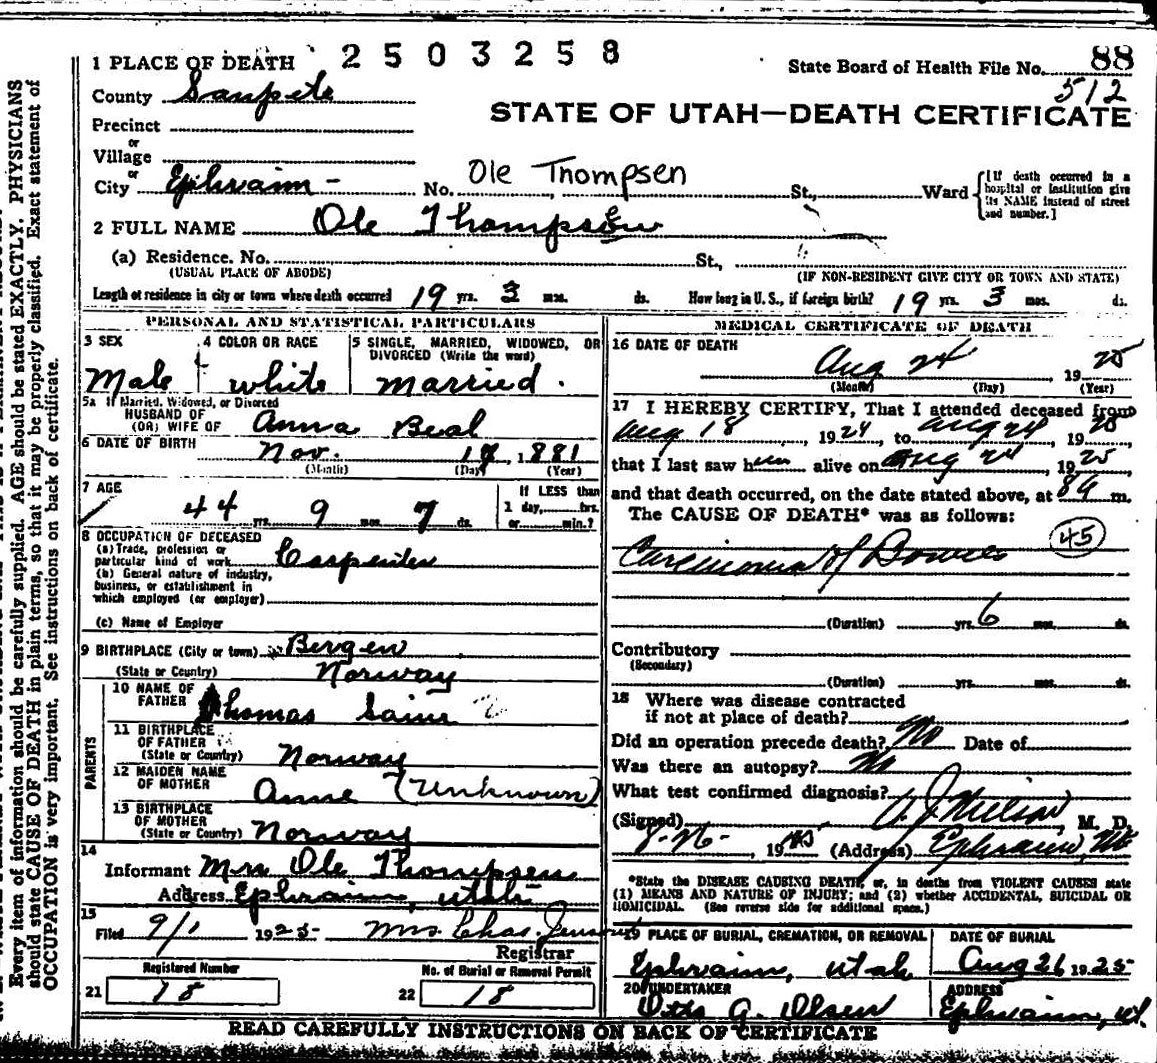 2503258
88
1 PLACE OF DEATH
State Board of Health File No. 512
County Sanpete
STATE OF UTAH—DEATH CERTIFICATE
Precinct
or
Village
or
City Ephraim - No. Ole Thompsen St., Ward
[If death occurred in a hospital or institution give its NAME instead of street and number.]
2 FULL NAME Ole Thompsen
(a) Residence. No. St.,
(USUAL PLACE OF ABODE) (IF NON-RESIDENT GIVE CITY OR TOWN AND STATE)
Length of residence in city or town where death occurred 19 yrs. 3 mos. ds. How long in U. S., if foreign birth? 19 yrs. 3 mos. ds.
PERSONAL AND STATISTICAL PARTICULARS
3 SEX
Male
4 COLOR OR RACE
white
5 SINGLE, MARRIED, WIDOWED, OR DIVORCED (Write the word)
married.
5a If Married, Widowed, or Divorced
HUSBAND OF
(OR) WIFE OF Anna Beal
6 DATE OF BIRTH Nov. 17, 1881
(Month) (Day) (Year)
7 AGE
44 yrs. 9 mos. 7 ds.
If LESS than
1 day, hrs.
or min.?
8 OCCUPATION OF DECEASED
(a) Trade, profession or
particular kind of work Carpenter
(b) General nature of industry,
business, or establishment in
which employed (or employer)
(c) Name of Employer
9 BIRTHPLACE (City or town) Bergen
(State or Country) Norway
PARENTS
10 NAME OF
FATHER Thomas
11 BIRTHPLACE
OF FATHER
(State or Country) Norway
12 MAIDEN NAME
OF MOTHER Anne (Unknown)
13 BIRTHPLACE
OF MOTHER
(State or Country) Norway
14
Informant Mrs Ole Thompsen
Address Ephraim, Utah
15
Filed 9/1 1925 Mrs. Chas. Jensen
Registrar
Registered Number
21 18
No. of Burial or Removal Permit
22 18
MEDICAL CERTIFICATE OF DEATH
16 DATE OF DEATH
Aug 24, 1925
(Month) (Day) (Year)
17 I HEREBY CERTIFY, That I attended deceased from
Aug 18, 1924, to Aug 24, 1925,
that I last saw him alive on Aug 24, 1925
and that death occurred, on the date stated above, at m.
The CAUSE OF DEATH* was as follows:
Carcinoma of Bowels (45)
(Duration) yrs. 6 mos. ds.
Contributory
(Secondary)
(Duration) yrs. mos. ds.
18 Where was disease contracted
if not at place of death?
Did an operation precede death? No Date of
Was there an autopsy? No
What test confirmed diagnosis?
(Signed) Nielson, M. D.
8-26-, 1925 (Address) Ephraim, Ut
*State the DISEASE CAUSING DEATH, or, in deaths from VIOLENT CAUSES state
(1) MEANS AND NATURE OF INJURY; and (2) whether ACCIDENTAL, SUICIDAL OR
HOMICIDAL. (See reverse side for additional space.)
19 PLACE OF BURIAL, CREMATION, OR REMOVAL
Ephraim, Utah
DATE OF BURIAL
Aug 26 1925
20 UNDERTAKER
Otto A. Olsen
ADDRESS
Ephraim, Ut.
READ CAREFULLY INSTRUCTIONS ON BACK OF CERTIFICATE
Every item of information should be carefully supplied. AGE should be stated EXACTLY. PHYSICIANS
should state CAUSE OF DEATH in plain terms, so that it may be properly classified. Exact statement of
OCCUPATION is very important. See instructions on back of certificate.